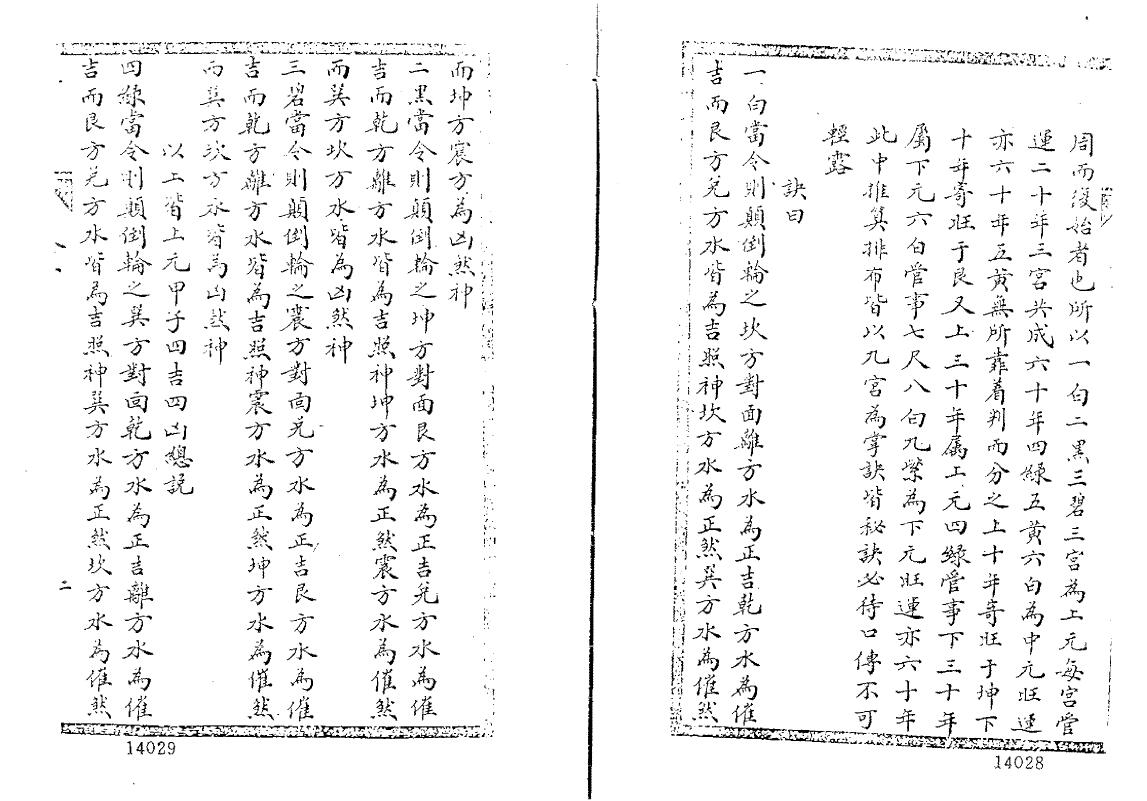 周而復始者也所以一白二黑三碧三宮為上元每宮管
運二十年三宮共成六十年四綠五黃六白為中元旺運
亦六十年五黃無所靠着判而分之上十年寄旺于坤下
十年寄旺于艮又上三十年属上元四綠管事下三十年
屬下元六白管事七尺八白九紫為下元旺運亦六十年
此中推算排布皆以九宮為掌訣皆秘訣必待口傳不可
輕露
訣曰
一白當令則顛倒輪之坎方對面離方水為正吉乾方水為催
吉而艮方兌方水皆為吉照神坎方水為正煞巽方水為催煞
14028
而坤方震方為凶煞神
二黑當令則顛倒輪之坤方對面艮方水為正吉兌方水為催
吉而乾方離方水皆為吉照神坤方水為正煞震方水為催煞
而巽方坎方水皆為凶煞神
三碧當令則顛倒輪之震方對面兌方水為正吉艮方水為催
吉而乾方離方水皆為吉照神震方水為正煞坤方水為催煞
而巽方坎方水皆為凶煞神
以上皆上元甲子四吉四凶總説
四綠當令則顛倒輪之巽方對面乾方水為正吉離方水為催
吉而艮方兌方水皆為吉照神巽方水為正煞坎方水為催煞
二
14029